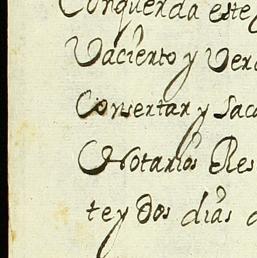 Conquerda este
Vacierto y Ver
Consertar y Saca
Notarios Res
te y dos dias